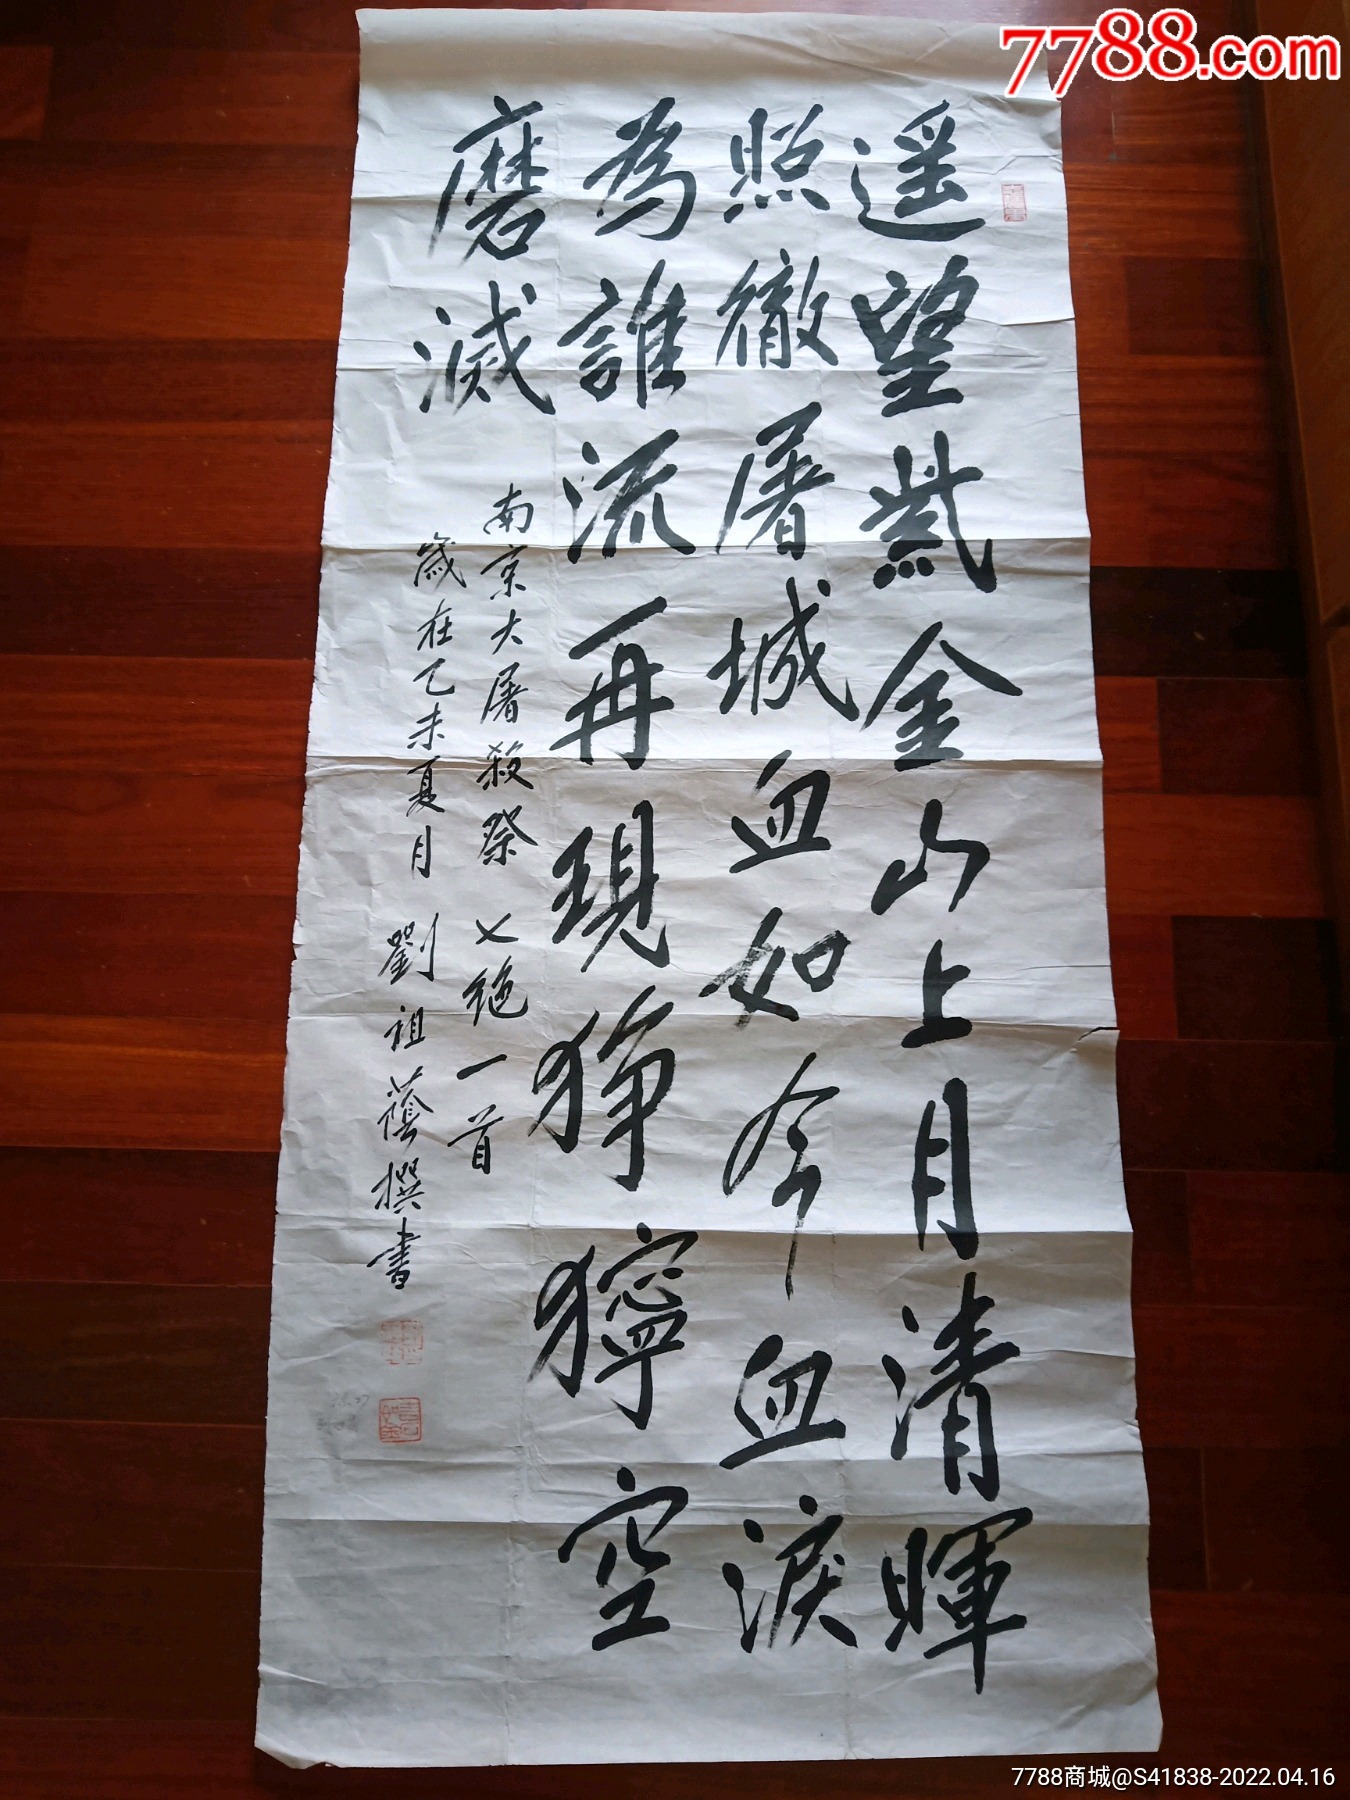 7788.com
遥望紫金山上月清暉
照徹屠城血如今血淚
為誰流再現猙獰空
磨滅
南京大屠殺祭 七絕一首
歲在乙未夏月 劉祖蔭撰書
7788商城@S41838-2022.04.16